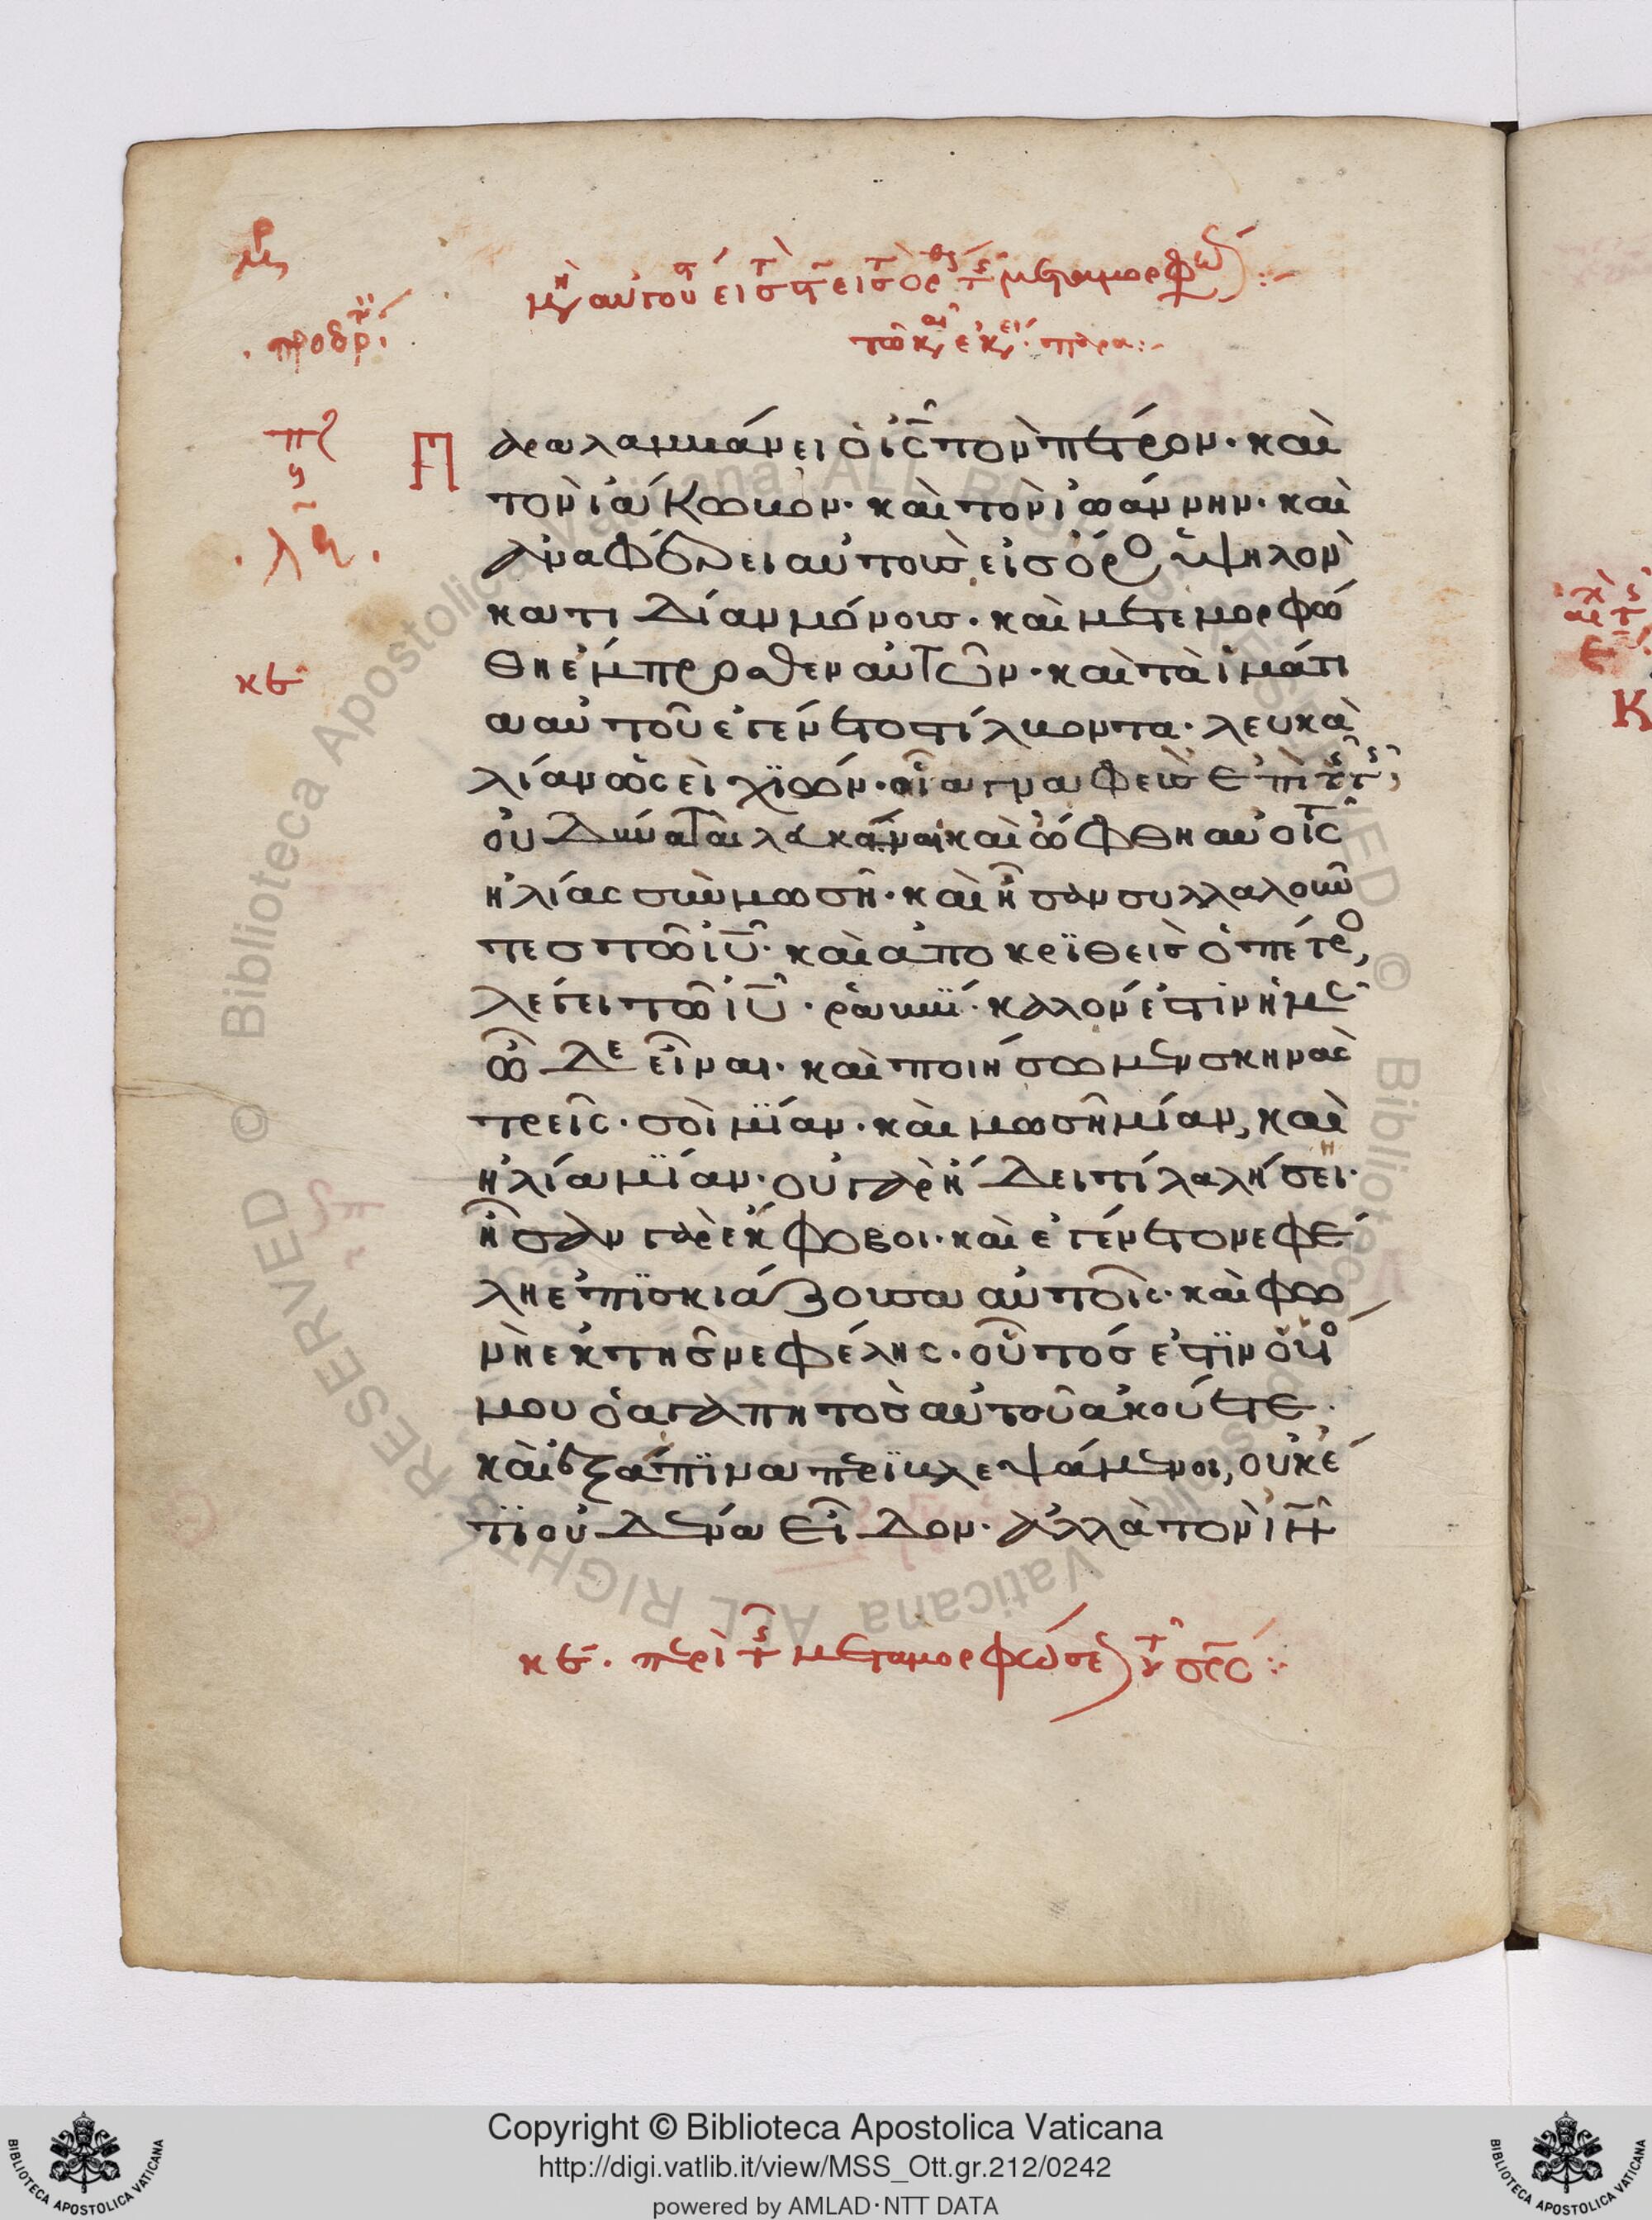 Παραλαμβάνει ὁ ἰς τὸν πέτρον· καὶ
τὸν ἰάκωβον· καὶ τὸν ἰωάννην· καὶ
ἀναφέρει αὐτοὺς εἰς ὄρο ὑψηλὸν
κατιδίαν μόνους· καὶ μετεμορφώ
θη ἔμπροσθεν αὐτῶν· καὶ τὰ ἱμάτι
α αὐτοῦ ἐγένετο στίλβοντα· λευκὰ
λίαν ὡσεὶ χϊών· οἷα γναφεὺς ἐπὶ τς γς
οὐ δύναται λευκάναι καὶ ὤφθη αὐοῖς
ἠλίας σὺν μωσῆ· καὶ ἦσαν συλλαλοῦν
τες τῶ ἰυ· καὶ ἀποκρϊθεὶς ὁ πέτρο,
λέγει τῶ ἰυ· ῥαββϊ· καλόν ἐστιν ἡμς
ὧδε εἶναι· καὶ ποιήσωμεν σκηνὰς
τρεῖς· σοὶ μϊαν· καὶ μωσῆ μίαν, καὶ
ἠλία μϊαν· οὐ γὰρ ἤδει τί λαλήσει·
ἦσαν γὰρ ἔκφοβοι· καὶ ἐγένετο νεφέ
λη ἐπϊσκιάζουσα αὐτοῖς· καὶ φω
νὴ ἐκ τῆς νεφέλης· οὗτός ἐστϊν ὁ υἱο
μου ὁ ἀγαπητὸς αὐτοῦ ἀκούετε·
καὶ ἐξάπϊνα περϊβλεψάμενοι, οὐκέ
τϊ οὐδένα εἶδον· ἀλλὰ τὸν ἰν
κε· περὶ τς μεταμορφώσεως τυ σρς
προδρ
κε
Copyright © Biblioteca Apostolica Vaticana
http://digi.vatlib.it/view/MSS_Ott.gr.212/0242
powered by AMLAD·NTT DATA
BIBLIOTECA APOSTOLICA VATICANA
BIBLIOTECA APOSTOLICA VATICANA